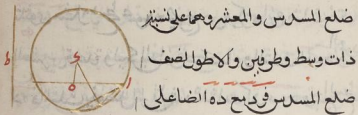 ضلع المسدس والمعشر وهما على نسبة
ذات وسط وطرفين والاطول نصف
ضلع المسدس فربع ده ايضا على
ه
ا